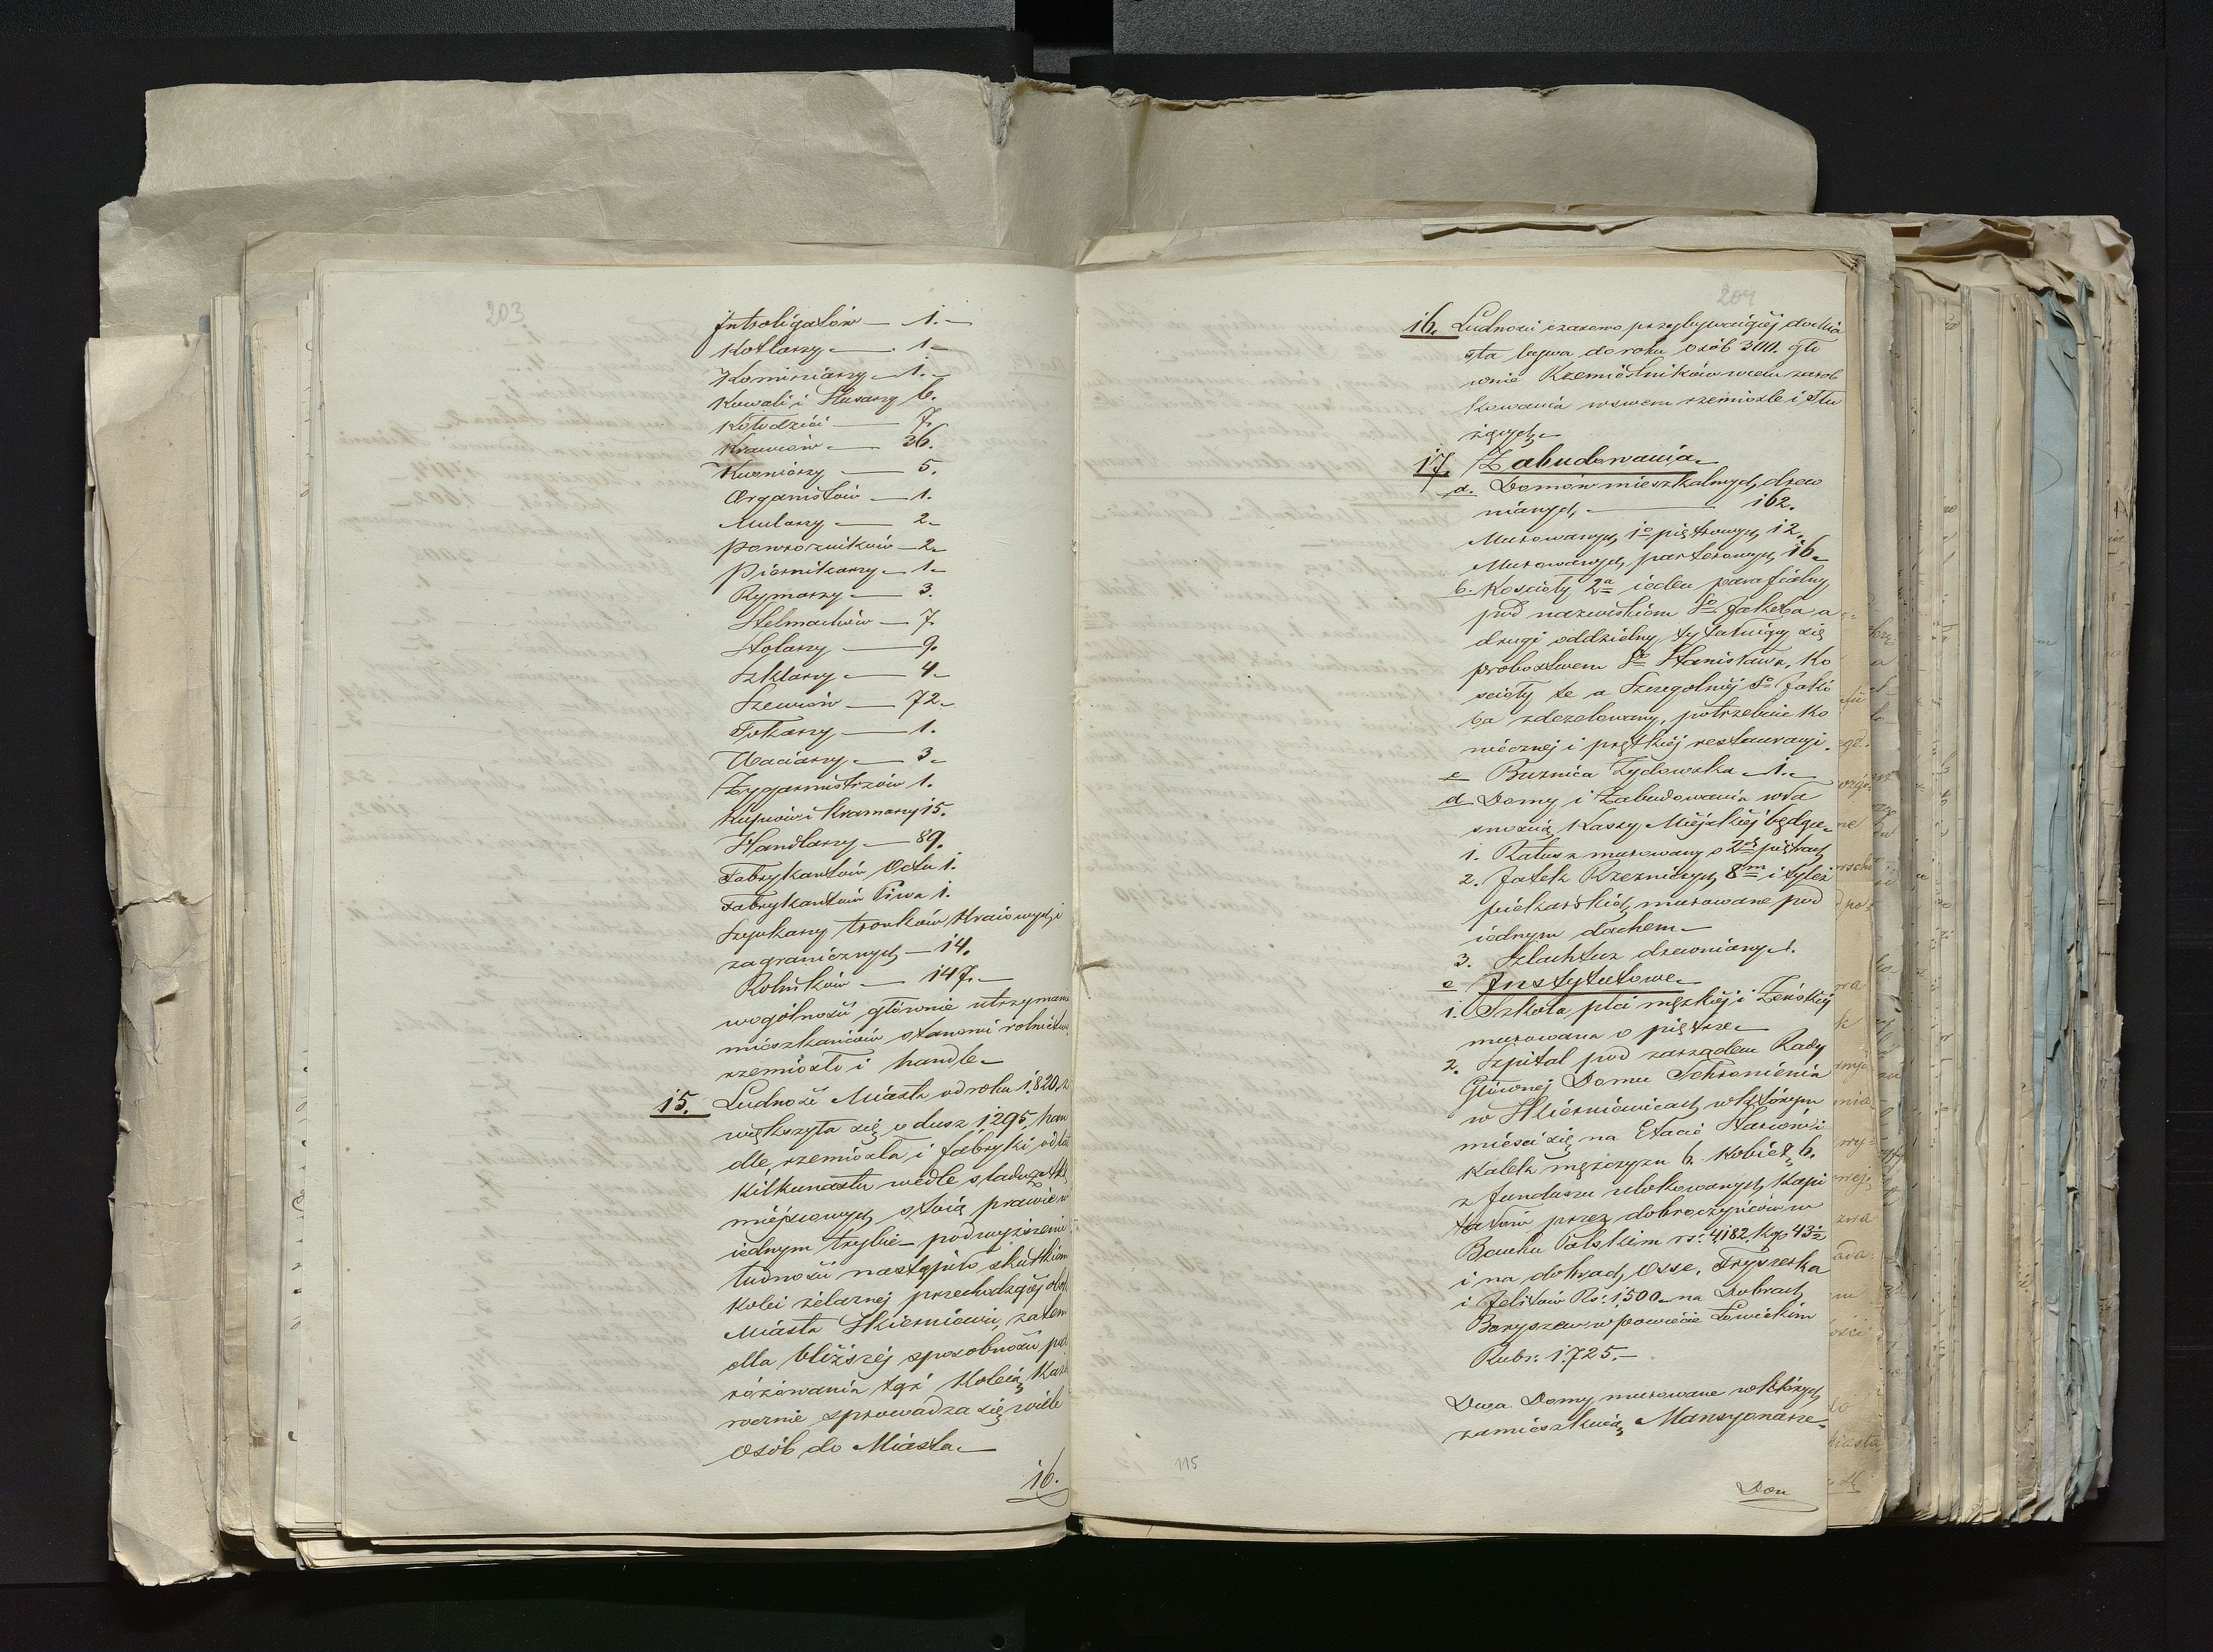 203
Introligatorów — 1. —
Kotlarzy — 1 —
Kominiarzy — 1. —
Kowali i Slusarzy 6.
Kołodziei — 7.
Krawców — 36.
Kuśnierzy — 5.
Organistów — 1.
Mularzy — 2 —
Powrozników — 2 —
Piernikarzy — 1 —
Rymarzy — 3.
Stelmachów — 7.
Stolarzy — 9.
Szklarzy — 4 —
Szewców — 72 —
Tokarzy — 1.
Waciarzy — 3 —
Zygarmistrzów 1.
Kupców i Kramarzy 15.
Handlarzy — 89.
Fabrykantów Octu 1.
Fabrykantów Piwa 1.
Szynkarzy trunków Kraiowych i
zagranicznych — 14.
Rolników — 147. —
wogólności głównie utrzymanie
mieszkańców stanowi rolnictwo,
rzemiosło i handle —
15. Ludność Miasta od roku 1820, z
większyła się o dusz 1295, han
dle, rzemiosła i fabryki od lat
kilkunastu wedle
miejscowych stoią prawie w
iednym trybie — podwyższenie
ludności nastąpiło skutkiem
kolei żelaznej przechodzącéj obok
Miasta Skierniewic, zatem
dla bliższéj sposobności pod
różowania tąż Koleią, Każo
rocznie sprowadza się wiele
osób do Miasta —
16.
204
16. Ludności czasowo przybywaiącéj do Mia
sta bywa do roku osób 300. głó
wnie Rzemieślników w celu zarob
kowania w swem rzemiośle i słu
żących —
17. Zabudowania —
a. Domów mieszkalnych, drew
nianych, — 162.
Murowanych 1o piętrowych 12.
Murowanych parterowych 16 —
b. Kościoły 2a ieden parafialny
pod nazwiskiem So Jakóba a
drugi oddzielny tytułuiący się
probostwem So Stanisława, Ko
ścioły te a Szczególniéj So Jakó
ba zdezelowany, potrzebuie Ko
niecznej i prętkiéj restauracyi.
c Bużnica Żydowska — 1. —
d Domy i Zabudowania wła
snością Kassy Miejskiéj będące —
1. Ratusz murowany o 2ch piętrach
2. Jatek Rzezniczych 8m i tyleż
piekarskich murowane pod
iednym dachem —
3. Szlachtuz drewniany — 1.
e Instytutowe —
1. Szkoła płci męzkiéj i Żeńskiéj
murowana o piętrze —
2. Szpital pod zarządem Rady
Głównej Domu Schronienia
w Skierniewicach, w którym
mieści się na Etacie Starców i
Kalek męzczyzn 6. Kobiet 6.
z funduszu ulokowanych Kapi
tałów przez dobroczyńców w
Banku Polskim rs: 4182. Kop 43½
i na dobrach, Osse, Fryszerka
i Jelitów Rs: 1500 — na Dobrach
Boryszew w powiecie Łowickim
Rubr: 1725. —
Dwa Domy murowane w których
zamieszkuią Mansyonarze —
Dom
115